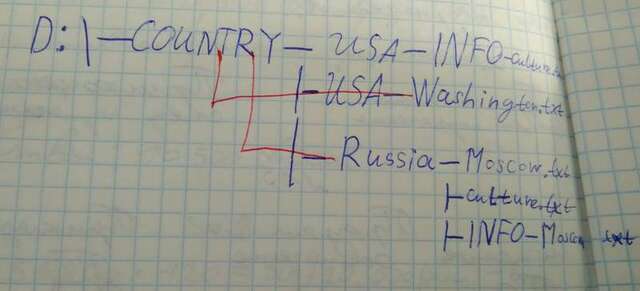 D:\—COUNTRY— USA—INFO—culture.txt
|—USA—Washington.txt
|—Russia—Moscow.txt
|—culture.txt
|—INFO—Moscow.txt